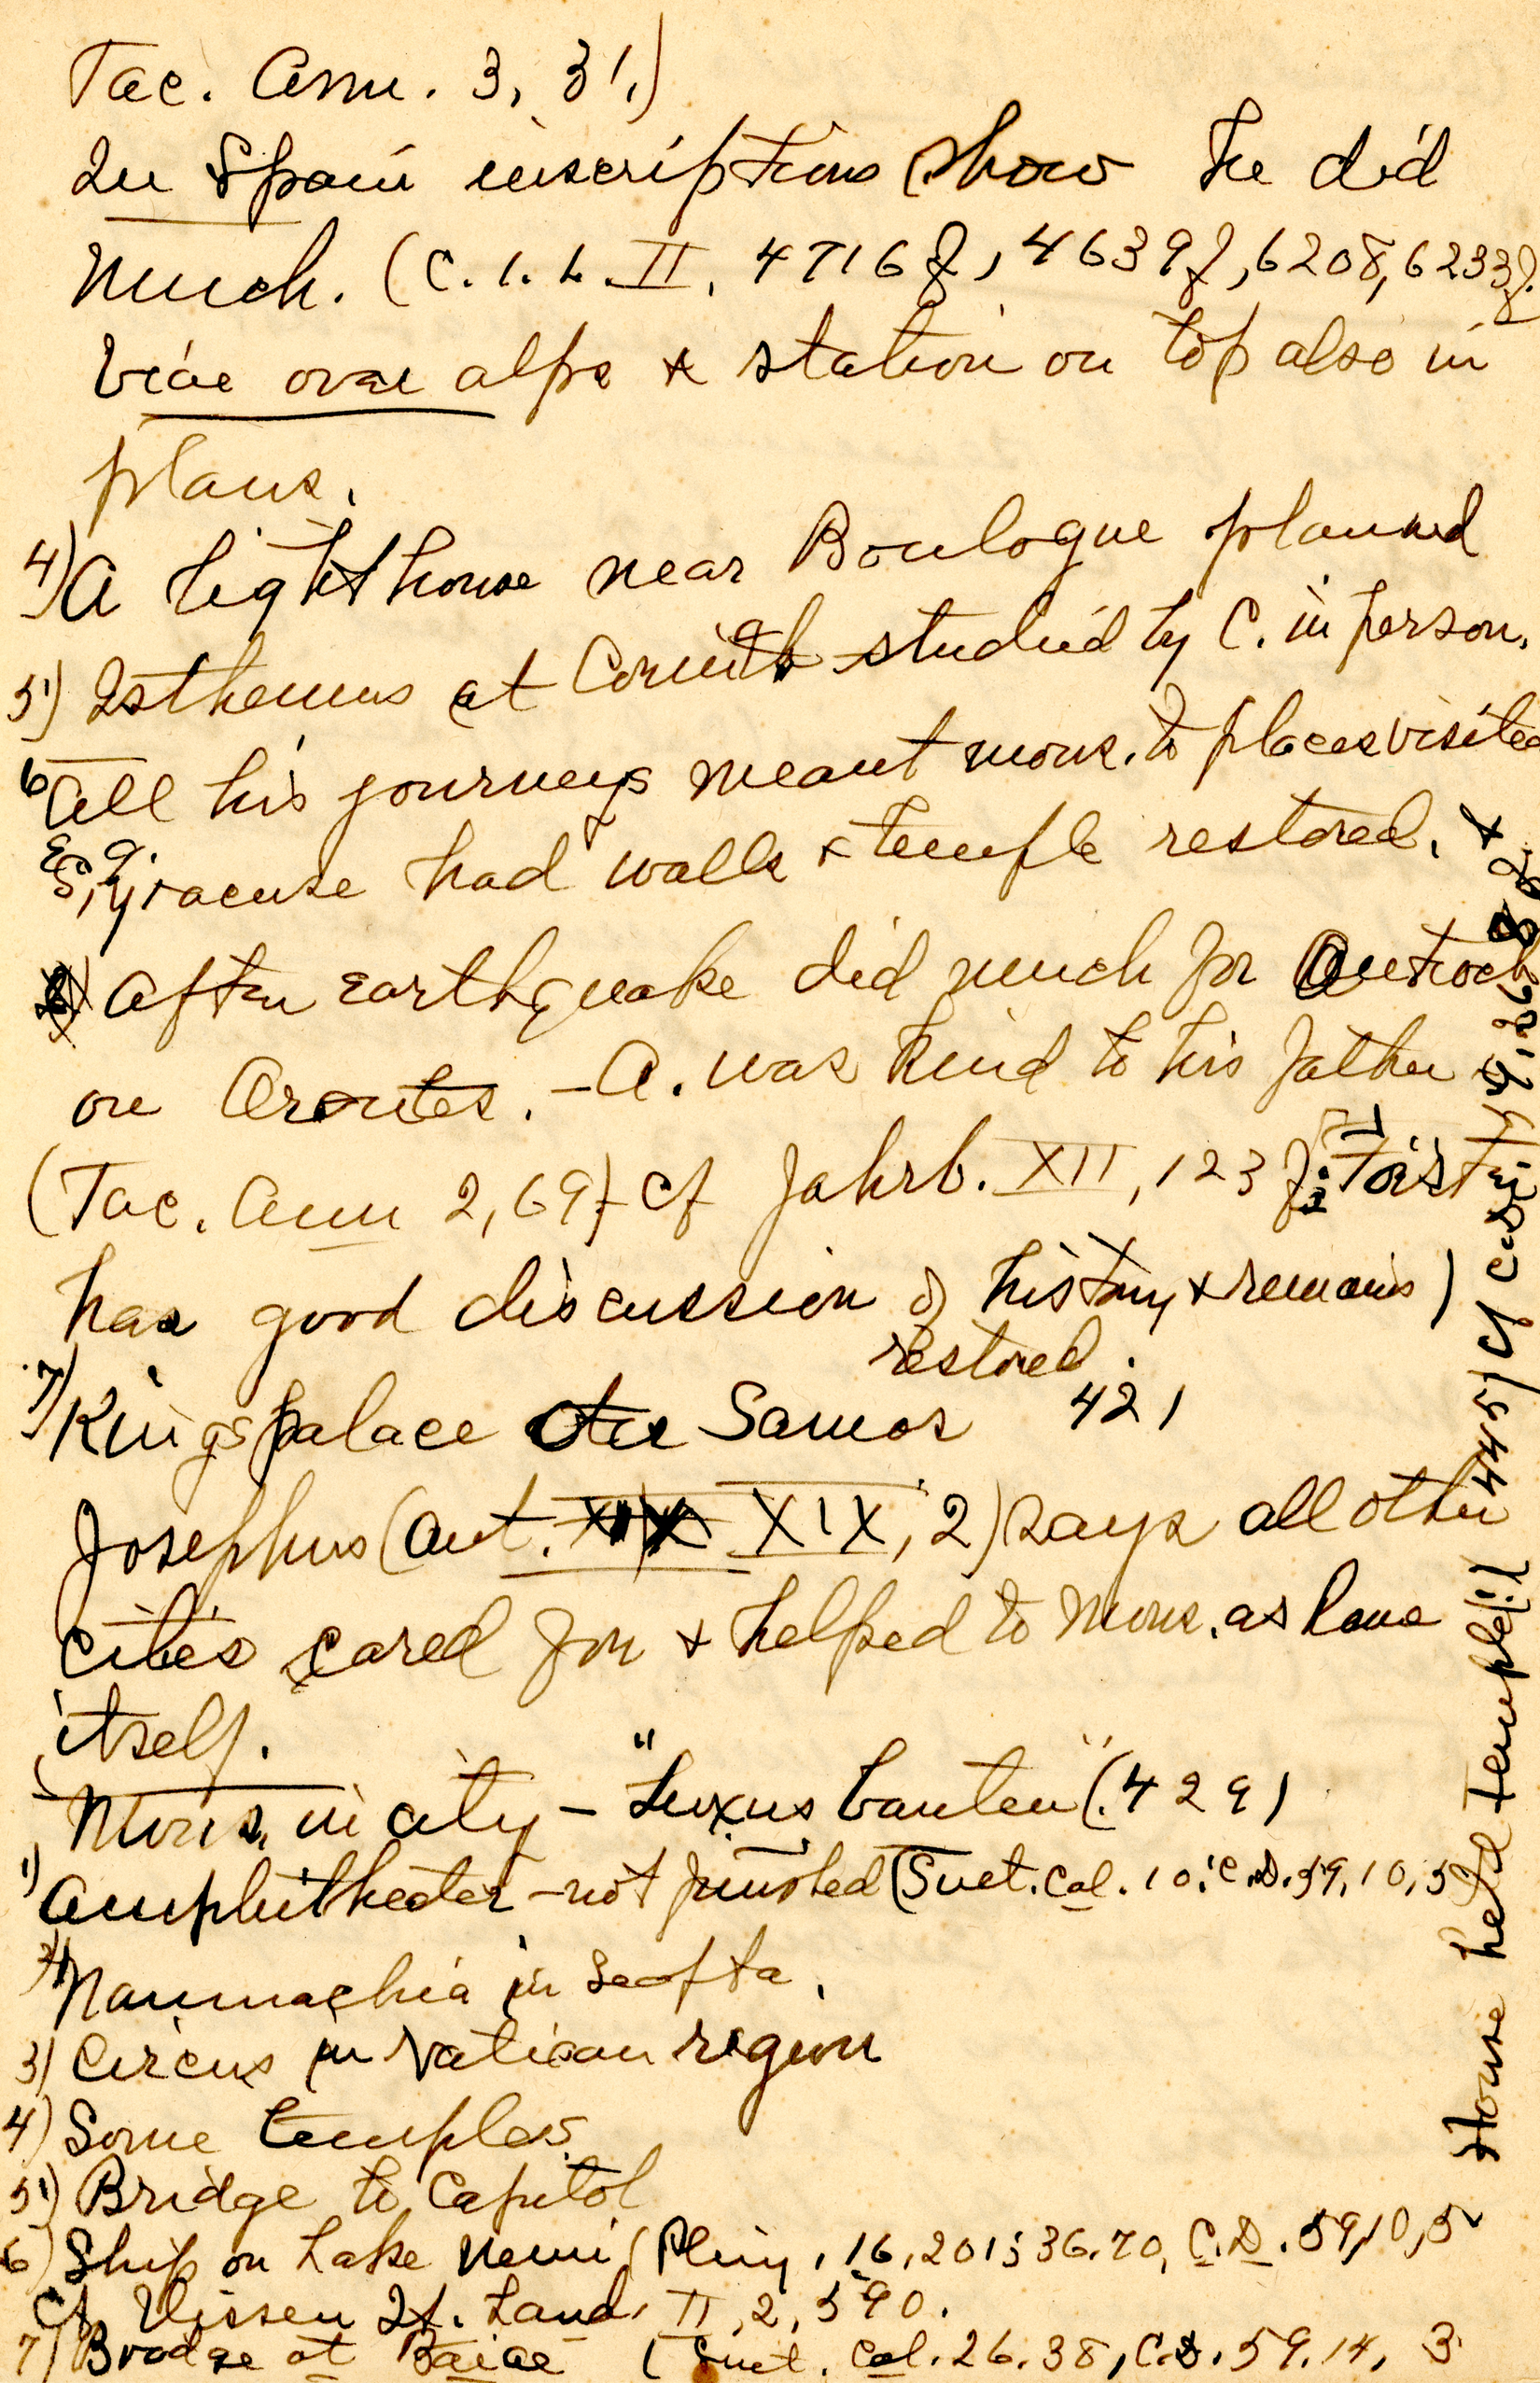 Tac. Ann. 3, 31.)
In Spain inscriptions show he did
much. (C.I.L. II. 4716f, 4639f, 6208, 6233f.
Viae over alps & station on top also in
plans.
4) A lighthouse near Boulogne planned
5) Isthemus at Corinth studied by C. in person.
6 All his journeys meant mons. to places visited
E.g.
Syracuse had walls & temple restored. &
After earthquake did much for Antioch
on Orontes. - A. was kind to his father
(Tac. Ann 2, 69) cf Jahrb. XII, 123 f: Förster
has good discussion of history & remains)
restored.
7) Kings palace on Samos 421
Josephus (Ant. XIX, 2) says all other
cities cared for & helped to mons. as Rome
itself.
Mons. in city - "Luxus bauten" (429)
1) Amphitheater - not finished (Suet. Cal. 10; C.D. 59, 10, 5
2) Naumachia in Saepta.
3) Circus in Vatican region
4) Some temples
5) Bridge to Capitol
6) Ship on Lake Nemi (Pliny, 16, 201; 36.70, C.D. 59, 10, 5
Cf. Nissen It. Land. II, 2, 590.
7) Brodge at Baiae (Suet. Cal. 26.38, C.D. 59.14, 3
House held temple